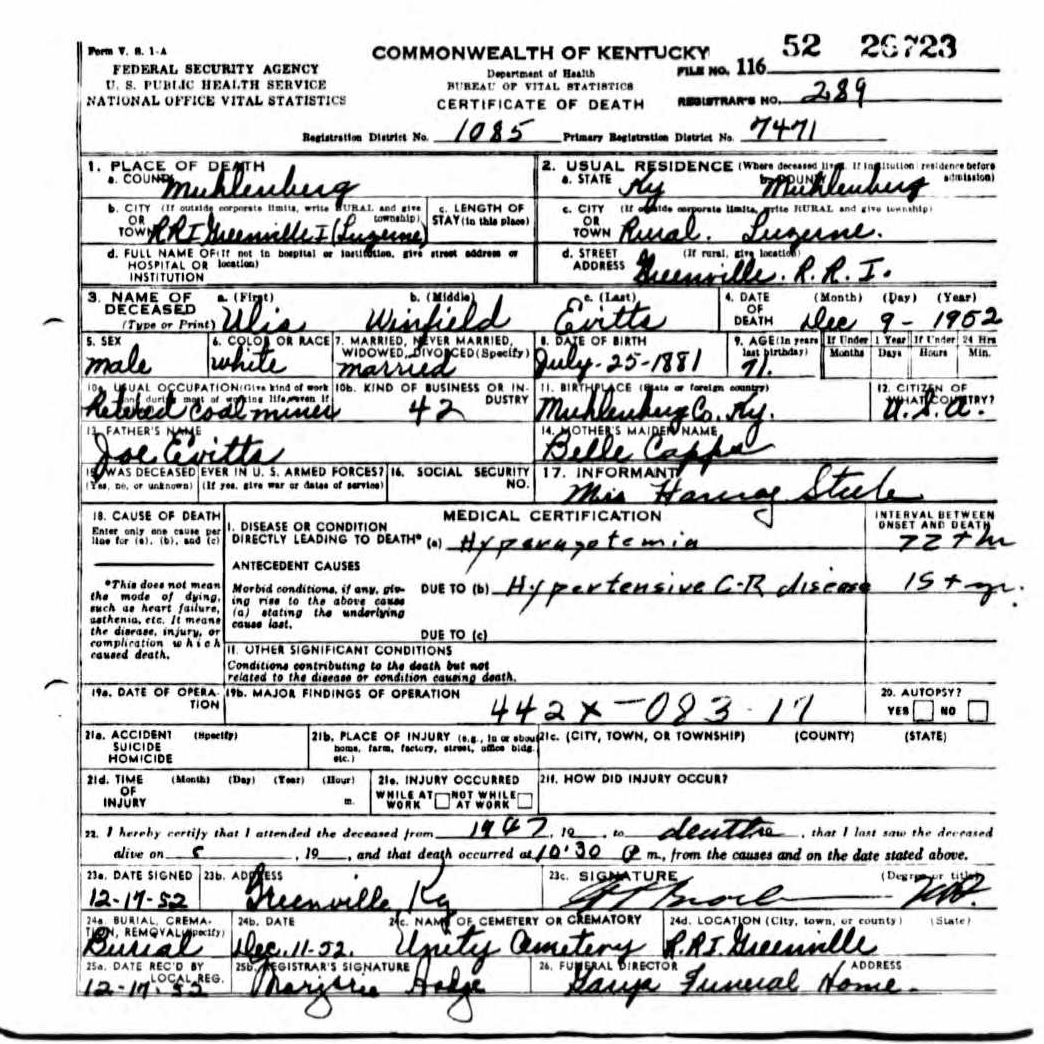 Form V. S. 1-A
COMMONWEALTH OF KENTUCKY
52 26723
FEDERAL SECURITY AGENCY
U. S. PUBLIC HEALTH SERVICE
NATIONAL OFFICE VITAL STATISTICS
Department of Health
BUREAU OF VITAL STATISTICS
CERTIFICATE OF DEATH
FILE NO. 116
REGISTRAR'S NO. 289
Registration District No. 1085 Primary Registration District No. 7471
1. PLACE OF DEATH
a. COUNTY Muhlenberg
2. USUAL RESIDENCE (Where deceased lived. If institution: residence before admission)
a. STATE Ky b. COUNTY Muhlenberg
b. CITY (If outside corporate limits, write RURAL and give township)
OR
TOWN RR1 Greenville I (Luzerne)
c. LENGTH OF STAY (in this place)
c. CITY (If outside corporate limits, write RURAL and give township)
OR
TOWN Rural. Luzerne.
d. FULL NAME OF (If not in hospital or institution, give street address or location)
HOSPITAL OR
INSTITUTION
d. STREET ADDRESS (If rural, give location)
Greenville. R.R.I.
3. NAME OF DECEASED (Type or Print)
a. (First) b. (Middle) c. (Last)
Ulis Winfield Evitts
4. DATE OF DEATH (Month) (Day) (Year)
Dec 9 - 1952
5. SEX
male
6. COLOR OR RACE
white
7. MARRIED, NEVER MARRIED, WIDOWED, DIVORCED (Specify)
married
8. DATE OF BIRTH
July-25-1881
9. AGE (In years last birthday)
71.
If Under 1 Year If Under 24 Hrs
Months Days Hours Min.
10a. USUAL OCCUPATION (Give kind of work done during most of working life, even if
Retered coal miner
10b. KIND OF BUSINESS OR INDUSTRY
42
11. BIRTHPLACE (State or foreign country)
Muhlenburg Co. Ky.
12. CITIZEN OF WHAT COUNTRY?
U.S.A.
13. FATHER'S NAME
Joe Evitts
14. MOTHER'S MAIDEN NAME
Belle Capps
15. WAS DECEASED EVER IN U. S. ARMED FORCES?
(Yes, no, or unknown) (If yes, give war or dates of service)
16. SOCIAL SECURITY NO.
17. INFORMANT
Steele
18. CAUSE OF DEATH
Enter only one cause per line for (a), (b), and (c)
MEDICAL CERTIFICATION
INTERVAL BETWEEN ONSET AND DEATH
I. DISEASE OR CONDITION
DIRECTLY LEADING TO DEATH* (a) Hyperazotemia 72 + hr
ANTECEDENT CAUSES
*This does not mean the mode of dying, such as heart failure, asthenia, etc. It means the disease, injury, or complication which caused death.
Morbid conditions, if any, giving rise to the above cause (a) stating the underlying cause last.
DUE TO (b) Hypertensive C-R disease 15 + yr.
DUE TO (c)
II. OTHER SIGNIFICANT CONDITIONS
Conditions contributing to the death but not related to the disease or condition causing death.
19a. DATE OF OPERATION
19b. MAJOR FINDINGS OF OPERATION
442X-083-17
20. AUTOPSY?
YES NO
21a. ACCIDENT (Specify)
SUICIDE
HOMICIDE
21b. PLACE OF INJURY (e.g., in or about home, farm, factory, street, office bldg. etc.)
21c. (CITY, TOWN, OR TOWNSHIP) (COUNTY) (STATE)
21d. TIME OF INJURY (Month) (Day) (Year) (Hour)
m.
21e. INJURY OCCURRED
WHILE AT WORK NOT WHILE AT WORK
21f. HOW DID INJURY OCCUR?
22. I hereby certify that I attended the deceased from 1947, 19__, to death, that I last saw the deceased
alive on __, 19__, and that death occurred at 10:30 P m., from the causes and on the date stated above.
23a. DATE SIGNED
12-17-52
23b. ADDRESS
Greenville Ky
23c. SIGNATURE (Degree or title)
M.D.
24a. BURIAL, CREMATION, REMOVAL (Specify)
Burial
24b. DATE
Dec. 11-52.
24c. NAME OF CEMETERY OR CREMATORY
Unity Cemetery
24d. LOCATION (City, town, or county) (State)
R.R.I. Greenville
25a. DATE REC'D BY LOCAL REG.
12-17-52
25b. REGISTRAR'S SIGNATURE
Marjorie Hodge
26. FUNERAL DIRECTOR ADDRESS
Funeral Home.